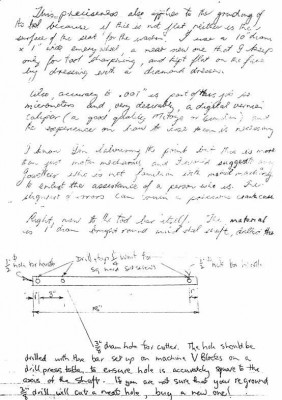 This preciseness also applies to the grinding of
the tool because if this is not flat neither is the
surface of the seat for the washer. I use a 10" diam
x 1" wide emery wheel, a near new one that I keep
only for tool sharpening, and kept flat on the face
by dressing with a diamond dresser.
Also, accuracy to .001" is part of the job so
micrometers and, very desirably, a digital vernier
caliper (a good quality, Mitutoyo or similar) and
the experience on how to use them is necessary
I know I'm delivering the point but this is more
than just motor mechanics and I would suggest any
Gooftee who is not familiar with metal machining
to enlist the assistance of a person who is. The
slightest of errors can ruin a precious crankcase
Right, now to the tool bar itself. The material
is 1" diam bright round mild steel shaft, drilled thus
hole for handle
Drill & tap 1/4 Whit for
sq head setscrews
hole for handle
1"
3"
1"
3/8" diam hole for cutter. The hole should be
drilled with the bar set up on machine V Blocks on a
drill press table, to ensure hole is accurately square to the
axis of the shaft. If you are not sure that your reground
3/8" drill will cut a neat hole, buy a new one!